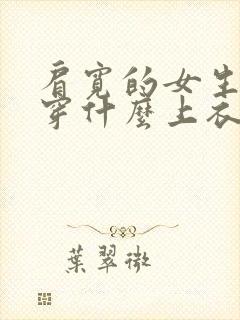 肩寬的女生
穿什麼上衣
葉翠微